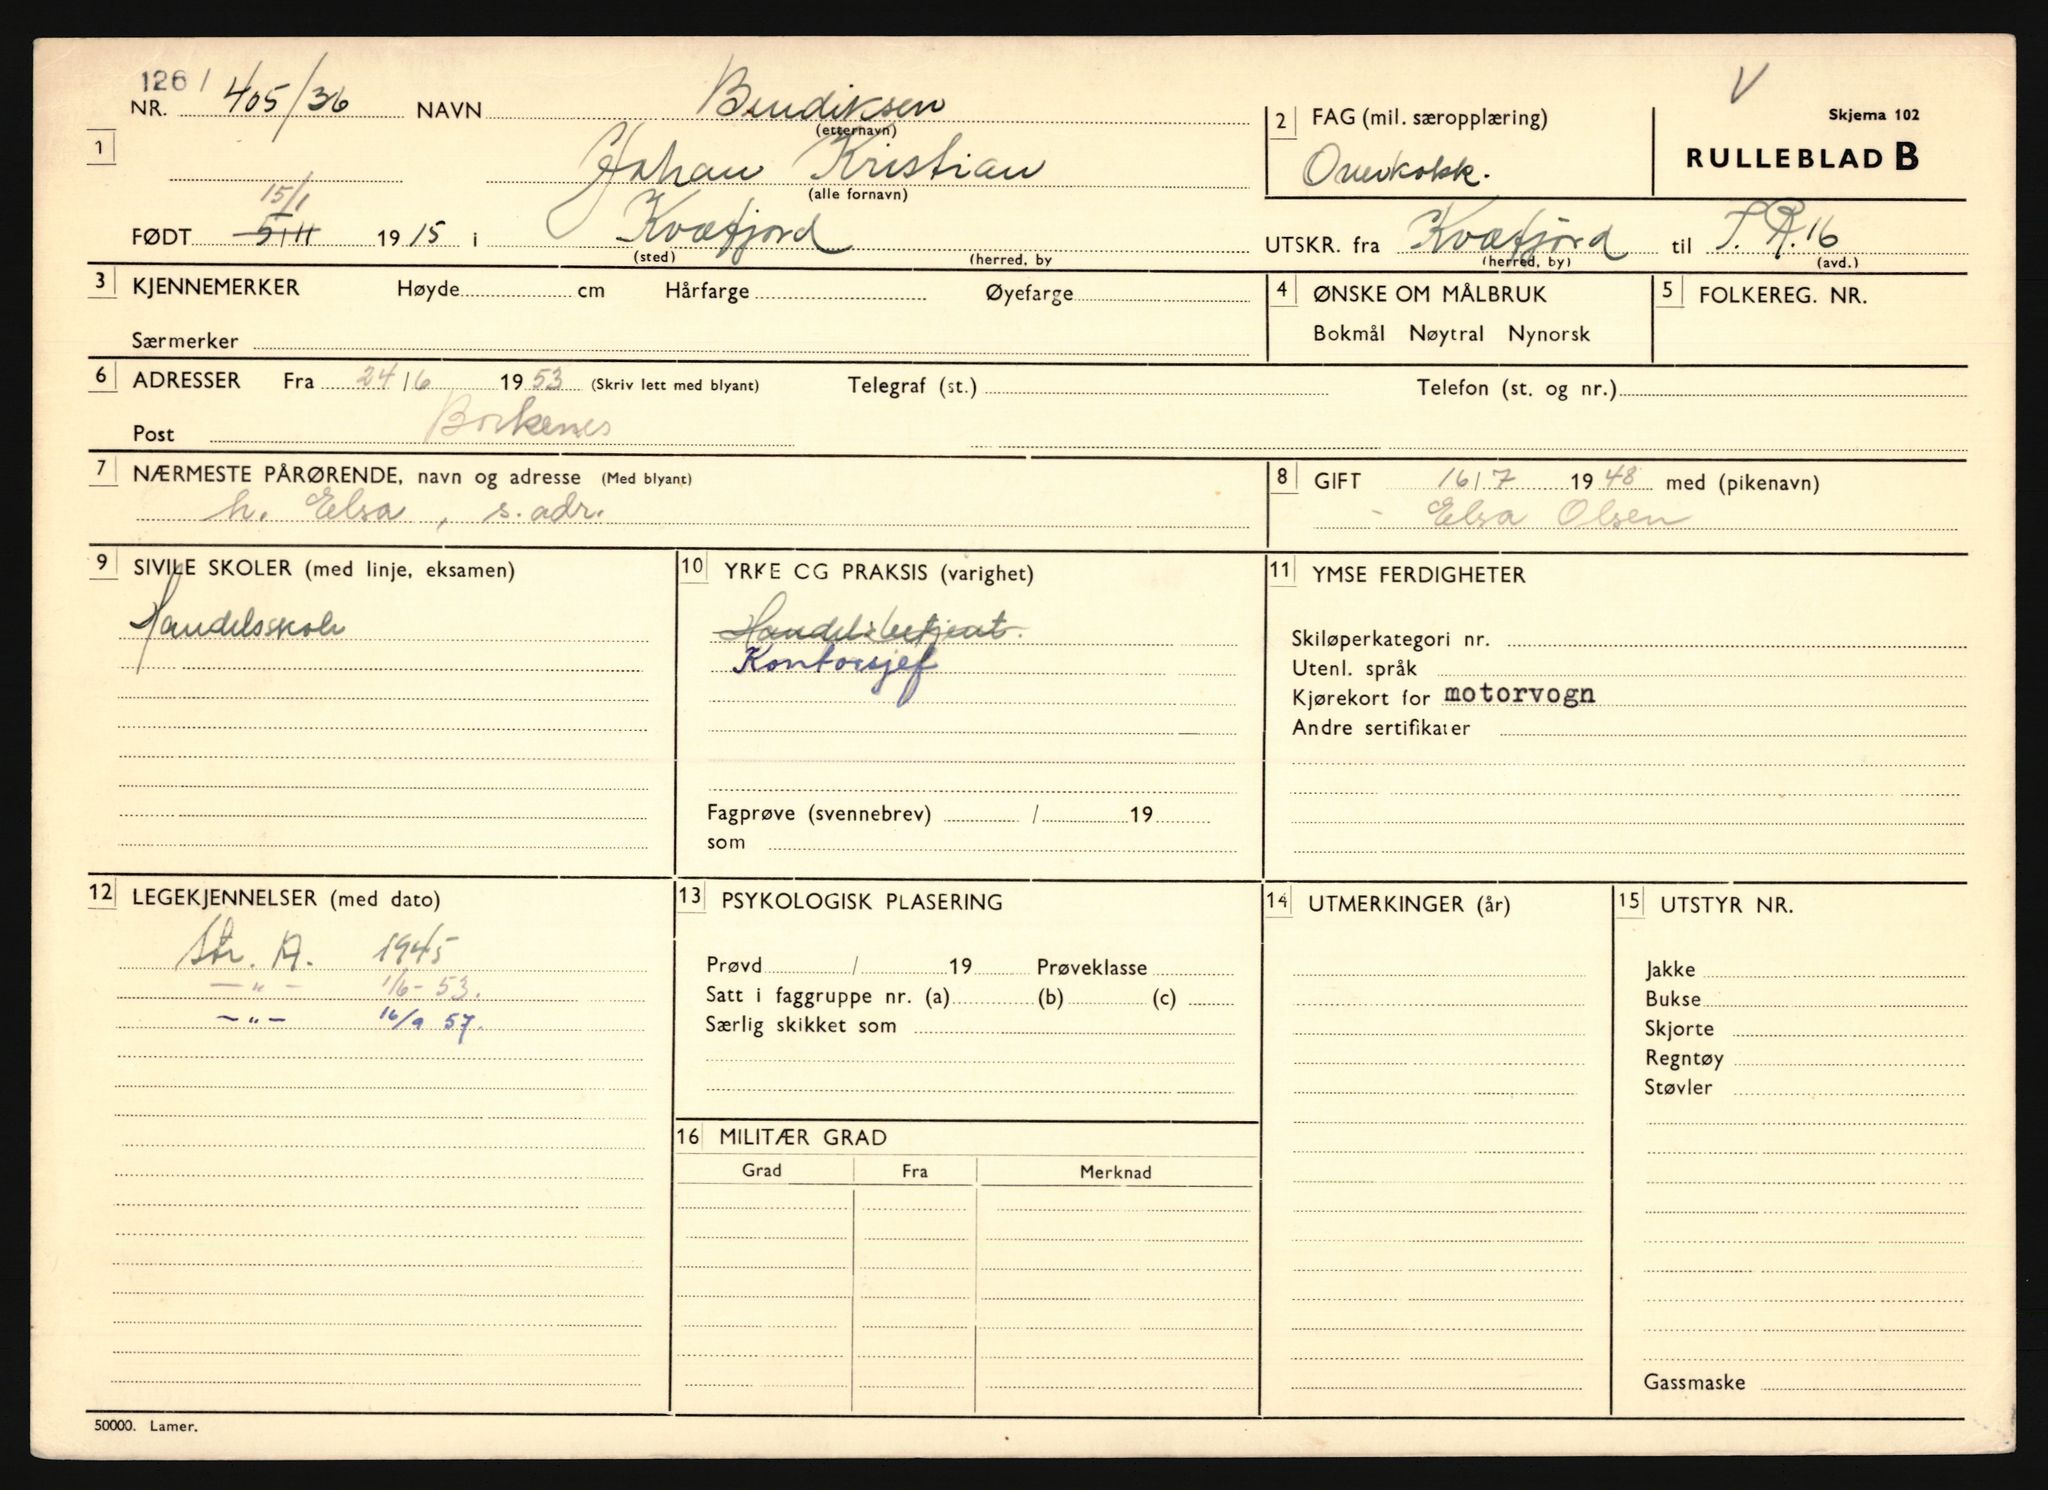 126/
NR. 405/36 NAVN Bendiksen
(etternavn)
2 FAG (mil. særopplæring)
Overkokk.
V
Skjema 102
RULLEBLAD B
1
Johan Kristian
(alle fornavn)
15/1
FØDT 5/11 1915 i Kvæfjord
(sted) (herred, by
UTSKR. fra Kvæfjord til I.R.16
(herred, by) (avd.)
3 KJENNEMERKER Høyde cm Hårfarge Øyefarge
Særmerker
4 ØNSKE OM MÅLBRUK
Bokmål Nøytral Nynorsk
5 FOLKEREG. NR.
6 ADRESSER Fra 24/6 1953 (Skriv lett med blyant) Telegraf (st.) Telefon (st. og nr.)
Post Borkenes
7 NÆRMESTE PÅRØRENDE, navn og adresse (Med blyant)
h. Elsa, s. adr.
8 GIFT 16/7 1948 med (pikenavn)
- Elsa Olsen
9 SIVILE SKOLER (med linje, eksamen)
Handelsskole
10 YRKE CG PRAKSIS (varighet)
Handelsbetjent.
Kontorsjef
Fagprøve (svennebrev) / 19
som
11 YMSE FERDIGHETER
Skiløperkategori nr.
Utenl. språk
Kjørekort for motorvogn
Andre sertifikater
12 LEGEKJENNELSER (med dato)
Str. A. 1945
—"— 1/6-53.
—"— 16/9 57.
13 PSYKOLOGISK PLASERING
Prøvd / 19 Prøveklasse
Satt i faggruppe nr. (a) (b) (c)
Særlig skikket som
14 UTMERKINGER (år)
15 UTSTYR NR.
Jakke
Bukse
Skjorte
Regntøy
Støvler
Gassmaske
16 MILITÆR GRAD
Grad Fra Merknad
50000. Lamer.